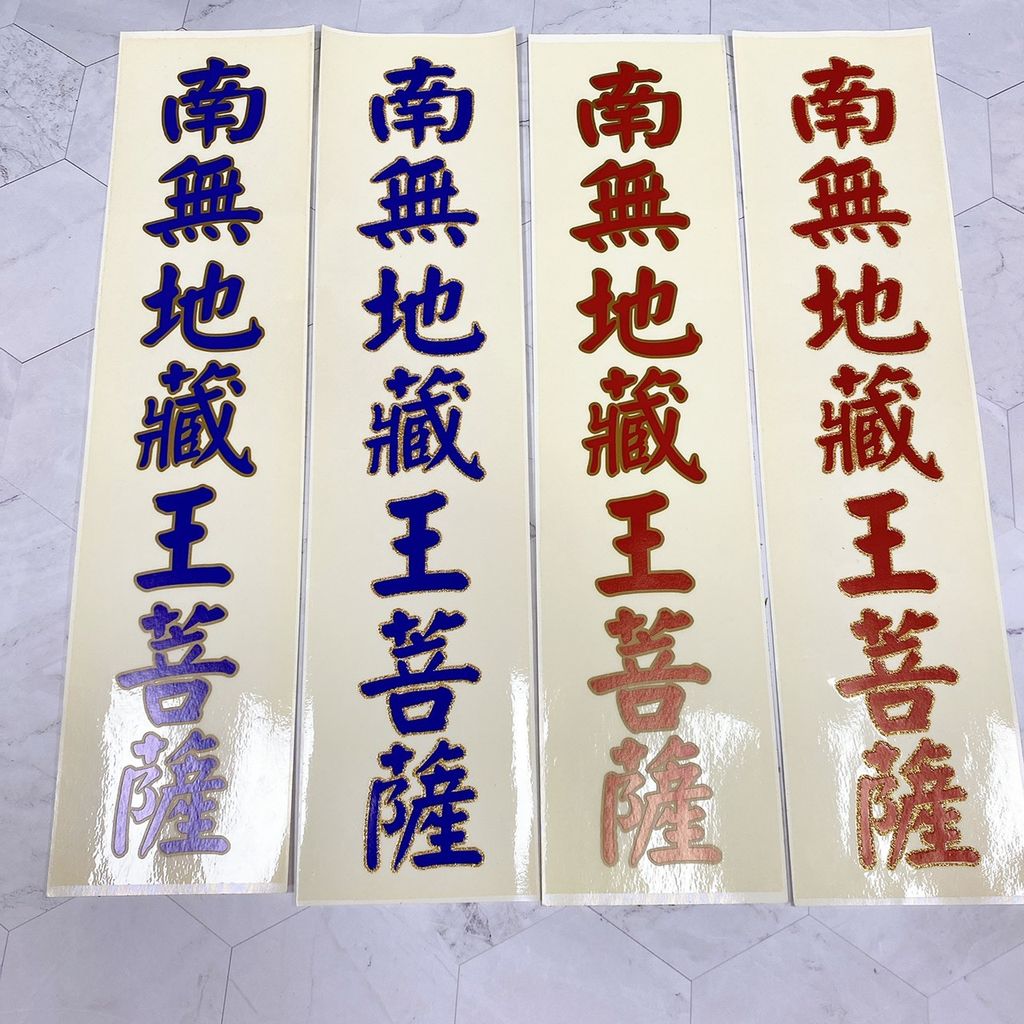 南無地藏王菩薩
南無地藏王菩薩
南無地藏王菩薩
南無地藏王菩薩